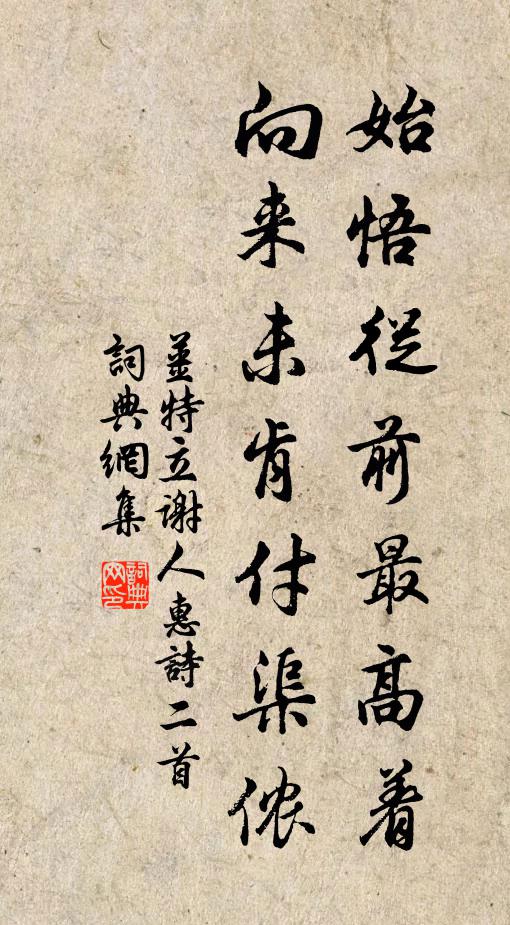 始悟從前最高着
向来未肯付渠侬
姜特立謝人惠詩二首
詞典網集
詞典网印